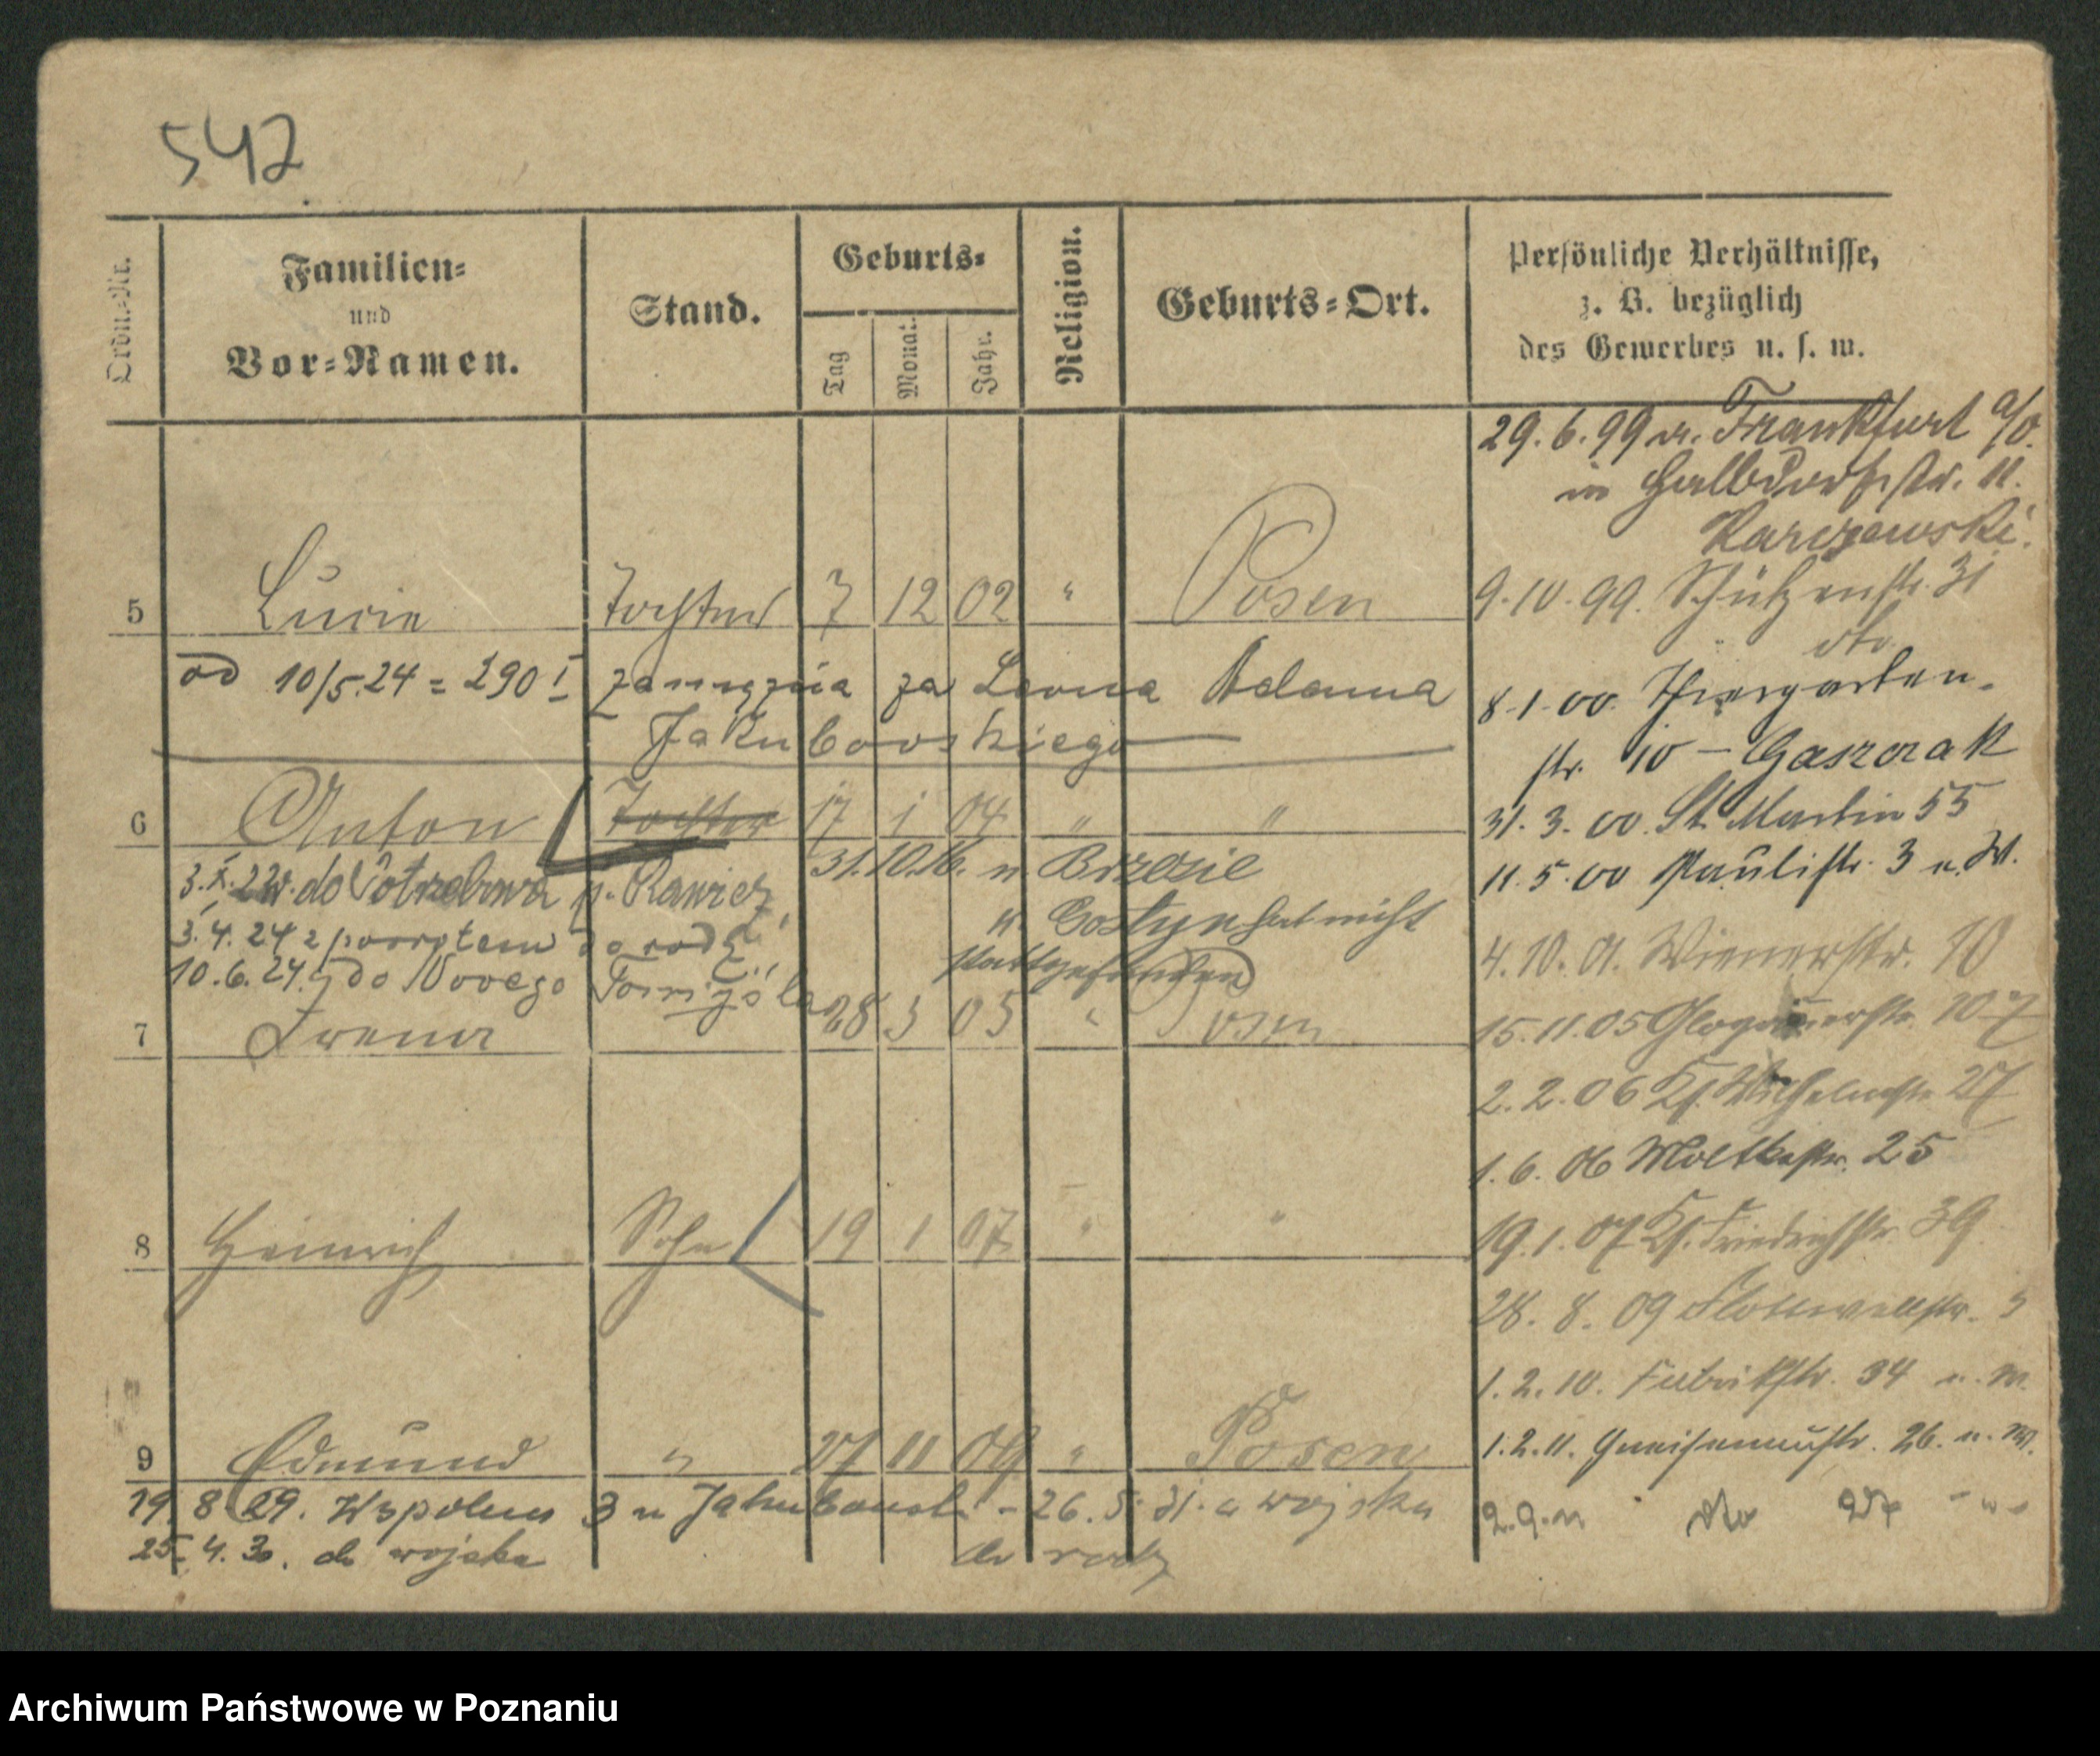 542
Ordn.-Nr.
Familien-
und
Vor-Namen.
Stand.
Geburts-
Tag
Monat.
Jahr.
Religion.
Geburts-Ort.
Persönliche Verhältnisse,
z. B. bezüglich
des Gewerbes u. s. w.
29.6.99 v. Frankfurt a/O.
in Halbdorfstr. 11.
Karczewski.
5 Lucie Tochter 7 12 02 " Posen
9.10.99. Schützenstr. 31
dto
od 10/5.24 = 290 I zamężna za Leona Adama
Jakubowskiego
8.1.00. Thiergarten-
str. 10 - Gaszczak
6 Anton Tochter 17 1 04 " "
31.3.00. St. Martin 55
31.10.16. n Brzezie
11.5.00 Paulistr. 3 u. W.
3.X.22 w. do Potrzebowa p. Rawicz
k. Gostyn hat nicht
3.4.24 z powrotem do rodz.
stattgefunden
4.10.01. Wienerstr. 10
10.6.24. do Nowego Tomyśla
7 Irena 28 3 05 " Posen
15.11.05 Glogauerstr. 107
2.2.06 Kl. Wilhelmstr. 27
1.6.06 Moltkestr. 25
8 Heinrich Sohn 19 1 07 " "
19.1.07 Kl. Friedrichstr. 39
28.8.09 Flottwellstr. 3
1.2.10. Fabrikstr. 34 u. W.
9 Edmund " 27 11 09 " Posen
1.2.11. Gneisenaustr. 26. u. W.
19.8.29. Wspólna 3 u Jakubowsk. - 26.5.31. z wojska
2.9.11 dto 27 - " -
25.4.30. do wojska
do rodz
Archiwum Państwowe w Poznaniu